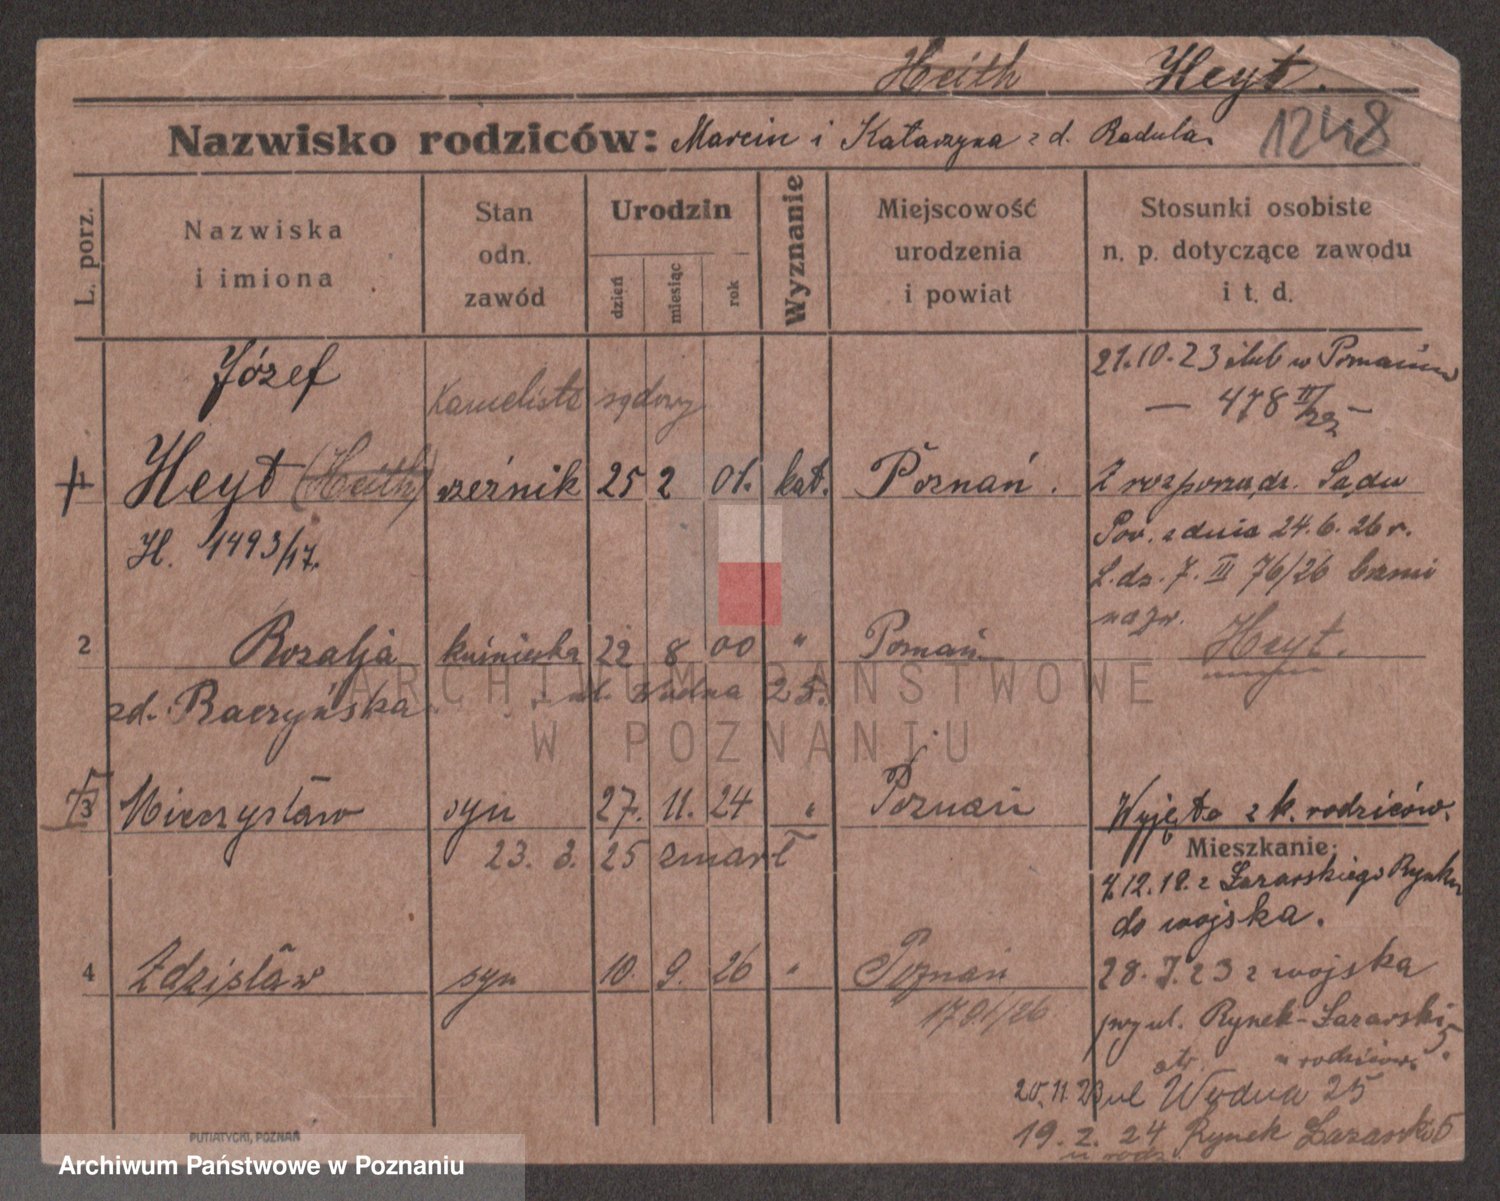 Heith Heyt.
Nazwisko rodziców: Marcin i Katarzyna z d. Radula.
1248
L. porz.
Nazwiska
i imiona
Stan
odn.
zawód
Urodzin
dzień
miesiąc
rok
Wyznanie
Miejscowość
urodzenia
i powiat
Stosunki osobiste
n. p. dotyczące zawodu
i t. d.
Józef
sądowy
21.10.23 ślub w Poznaniu
— 478 II/23 —
1 Heyt (Heith) rzeźnik 25 2 01. kat. Poznań.
Z rozporządz. Sądu
H. 1493/17.
Pow. z dnia 24.6.26 r.
L.dz. 7. III 76/26 brzmi
nazw. Heyt.
2 Rozalja kuśnierka 22 8 00 " Poznań
zd. Raczyńska ul. Wodna 25.
3 Mieczysław syn 27. 11. 24 " Poznań
Wyjęto z k. rodziców.
23. 3. 25 zmarł
Mieszkanie:
4.12.18. z Łazarskiego Rynku
do wojska.
4 Zdzisław syn 10. 9. 26 " Poznań
1791/26
28.7.23 z wojska
przy ul. Rynek-Łazarski 5.
u rodziców.
20.11.23 ul Wodna 25
19.2.24 Rynek Łazarski 5
u rodz.
PUTIATYCKI, POZNAŃ
ARCHIWUM PAŃSTWOWE
W POZNANIU
Archiwum Państwowe w Poznaniu